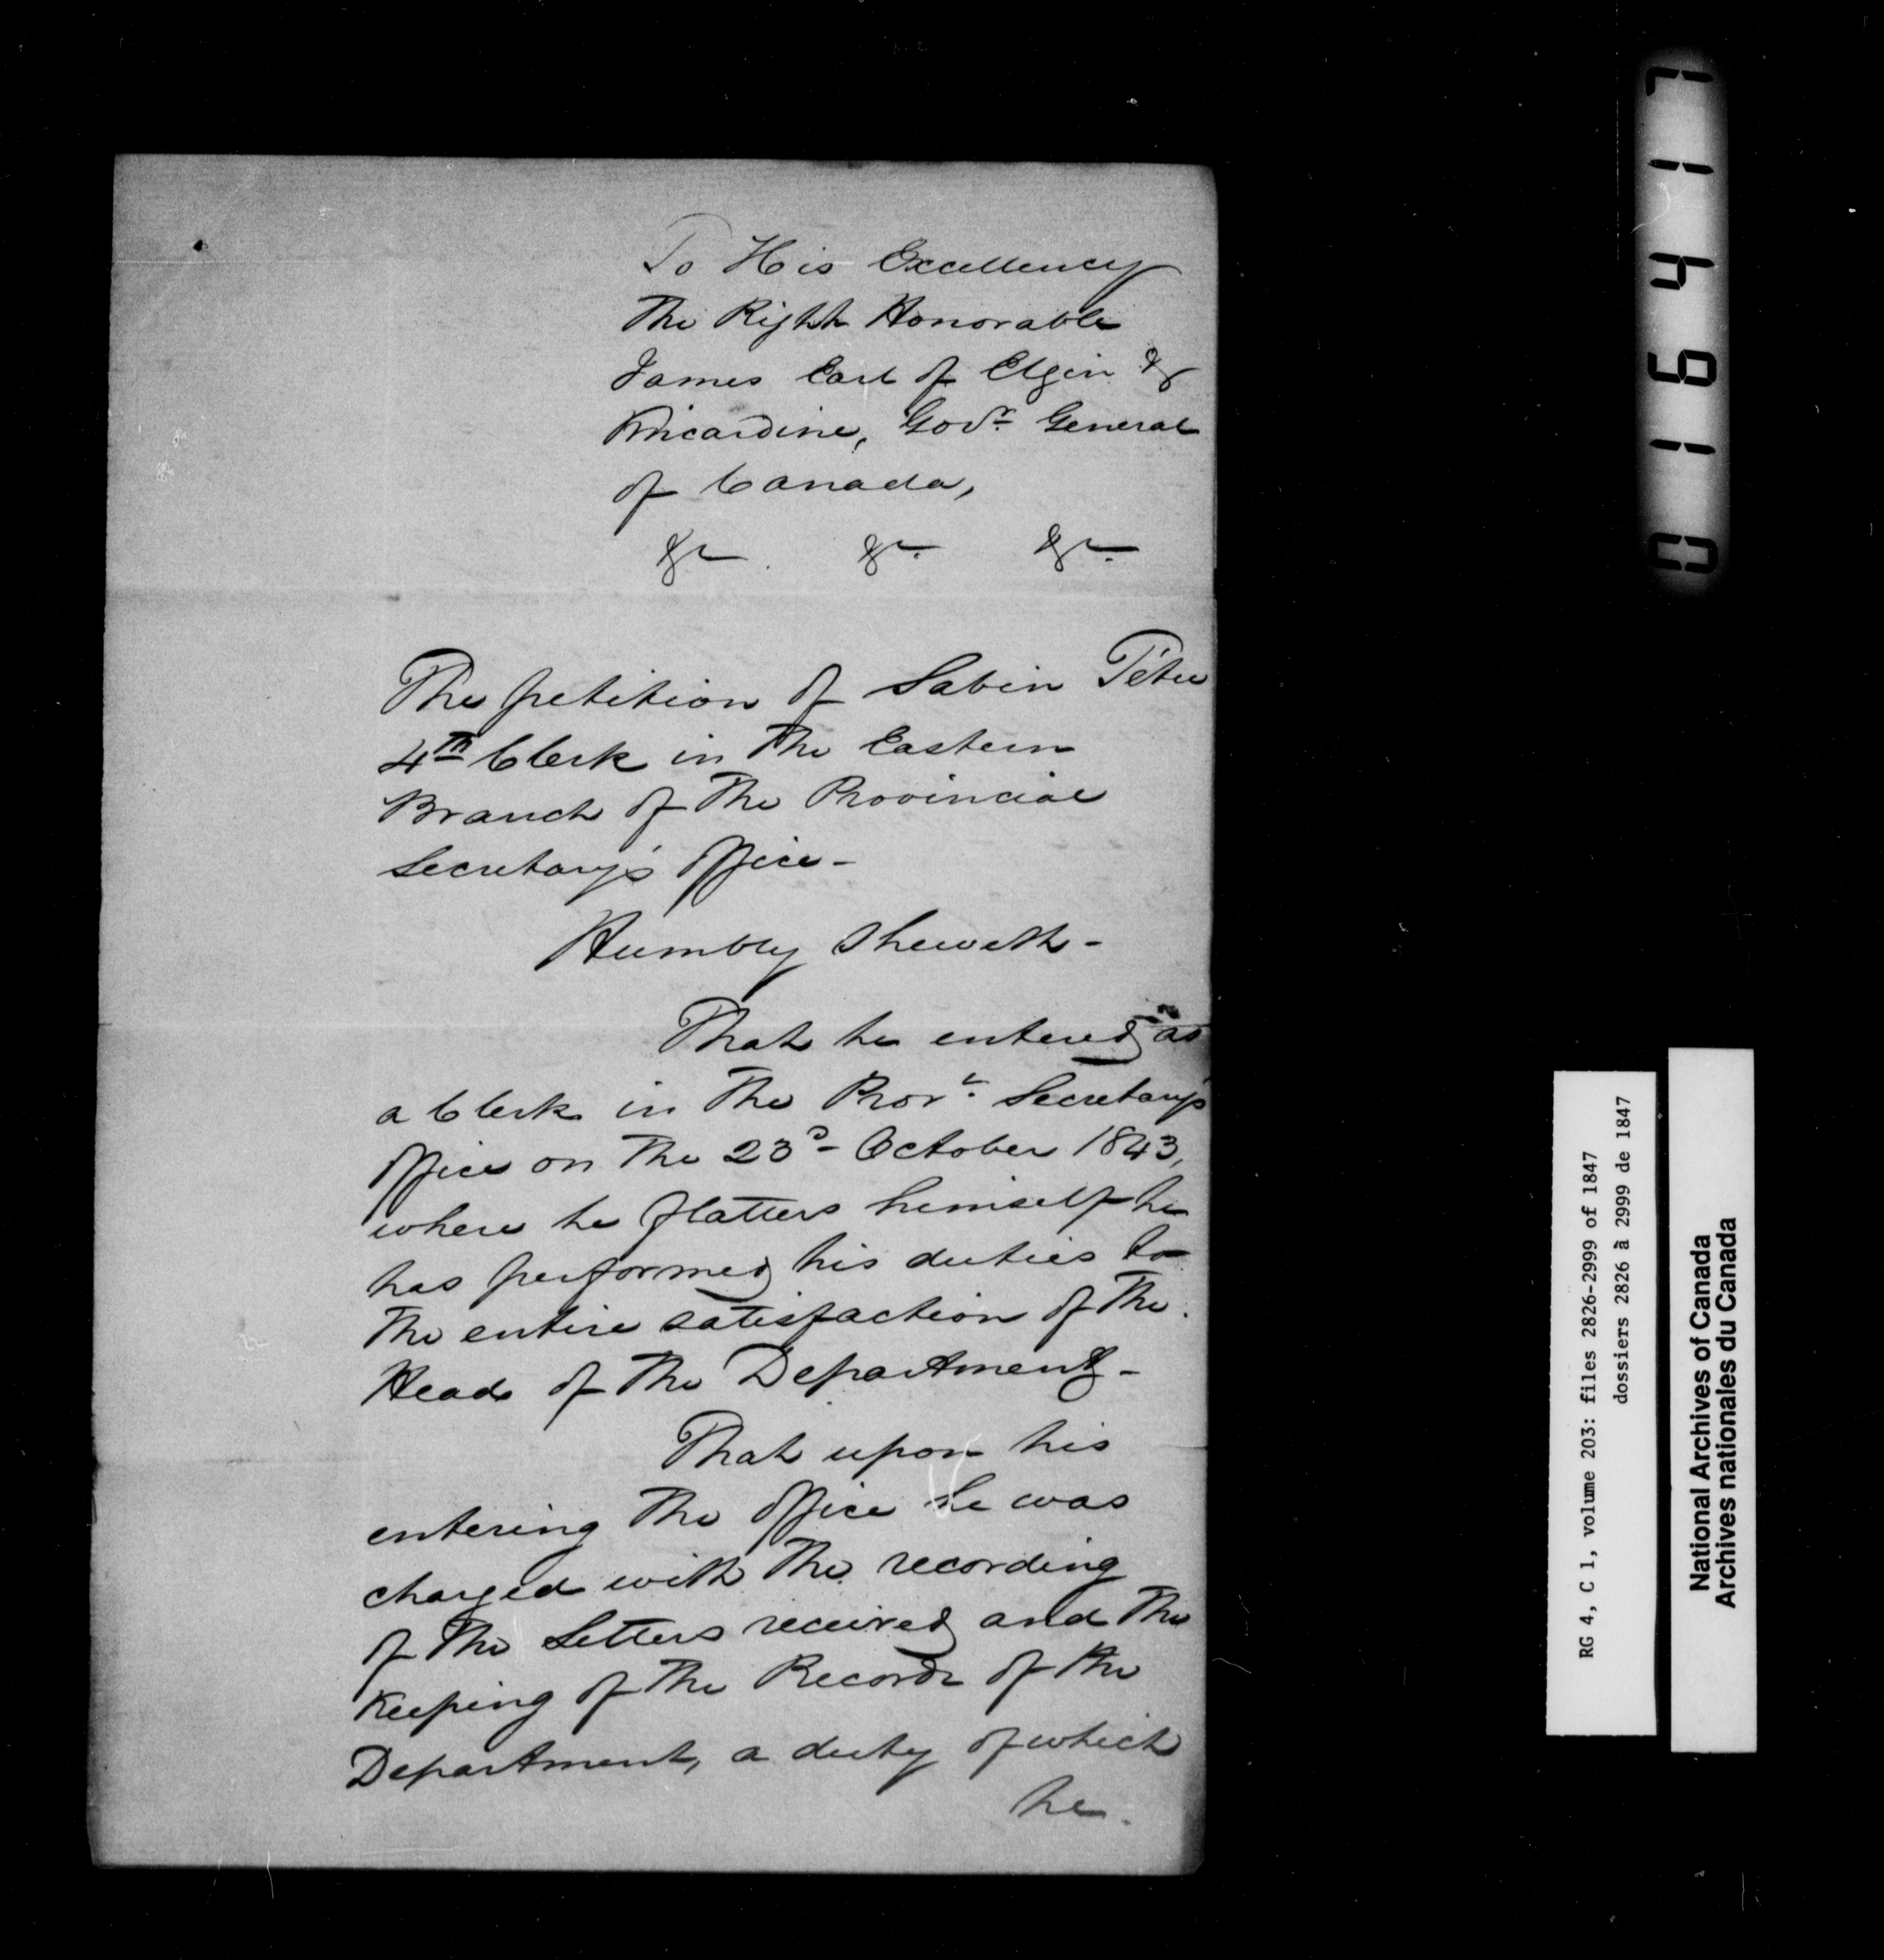 To His Excellency
The Right Honorable
James Earl of Elgin &
Kincardine, Govr. General
of Canada,
&c. &c. &c.
The petition of Sabin Têtu
4th Clerk in the Eastern
Branch of the Provincial
Secretary's Office -
Humbly Sheweth -
That he entered as
a Clerk in the Provl. Secretary's
Office on the 23d October 1843,
where he flatters himself he
has performed his duties to
the entire satisfaction of the
Heads of the Department -
That upon his
entering the Office he was
charged with the recording
of the Letters received and the
Keeping of the Records of the
Department, a duty of which
he
016417
RG 4, C 1, volume 203: files 2826-2999 of 1847
dossiers 2826 à 2999 de 1847
National Archives of Canada
Archives nationales du Canada